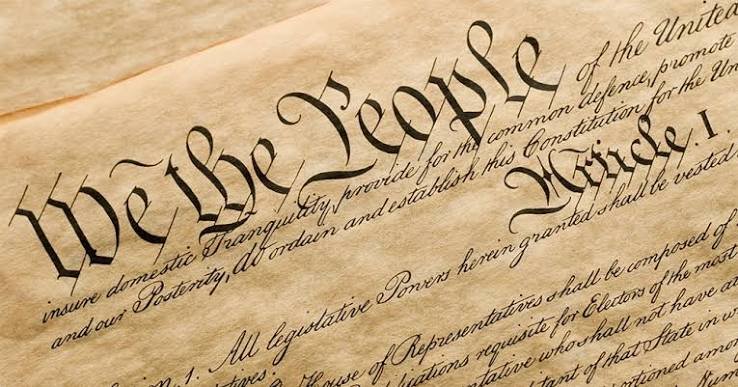 We the People of the United
insure domestic Tranquility, provide for the common defence, promote
and our Posterity, do ordain and establish this Constitution for the Un
Article. I.
1. All legislative Powers herein granted shall be vested
House of Representatives shall be composed of
requisite for Electors of the most
who shall not have
of that State in